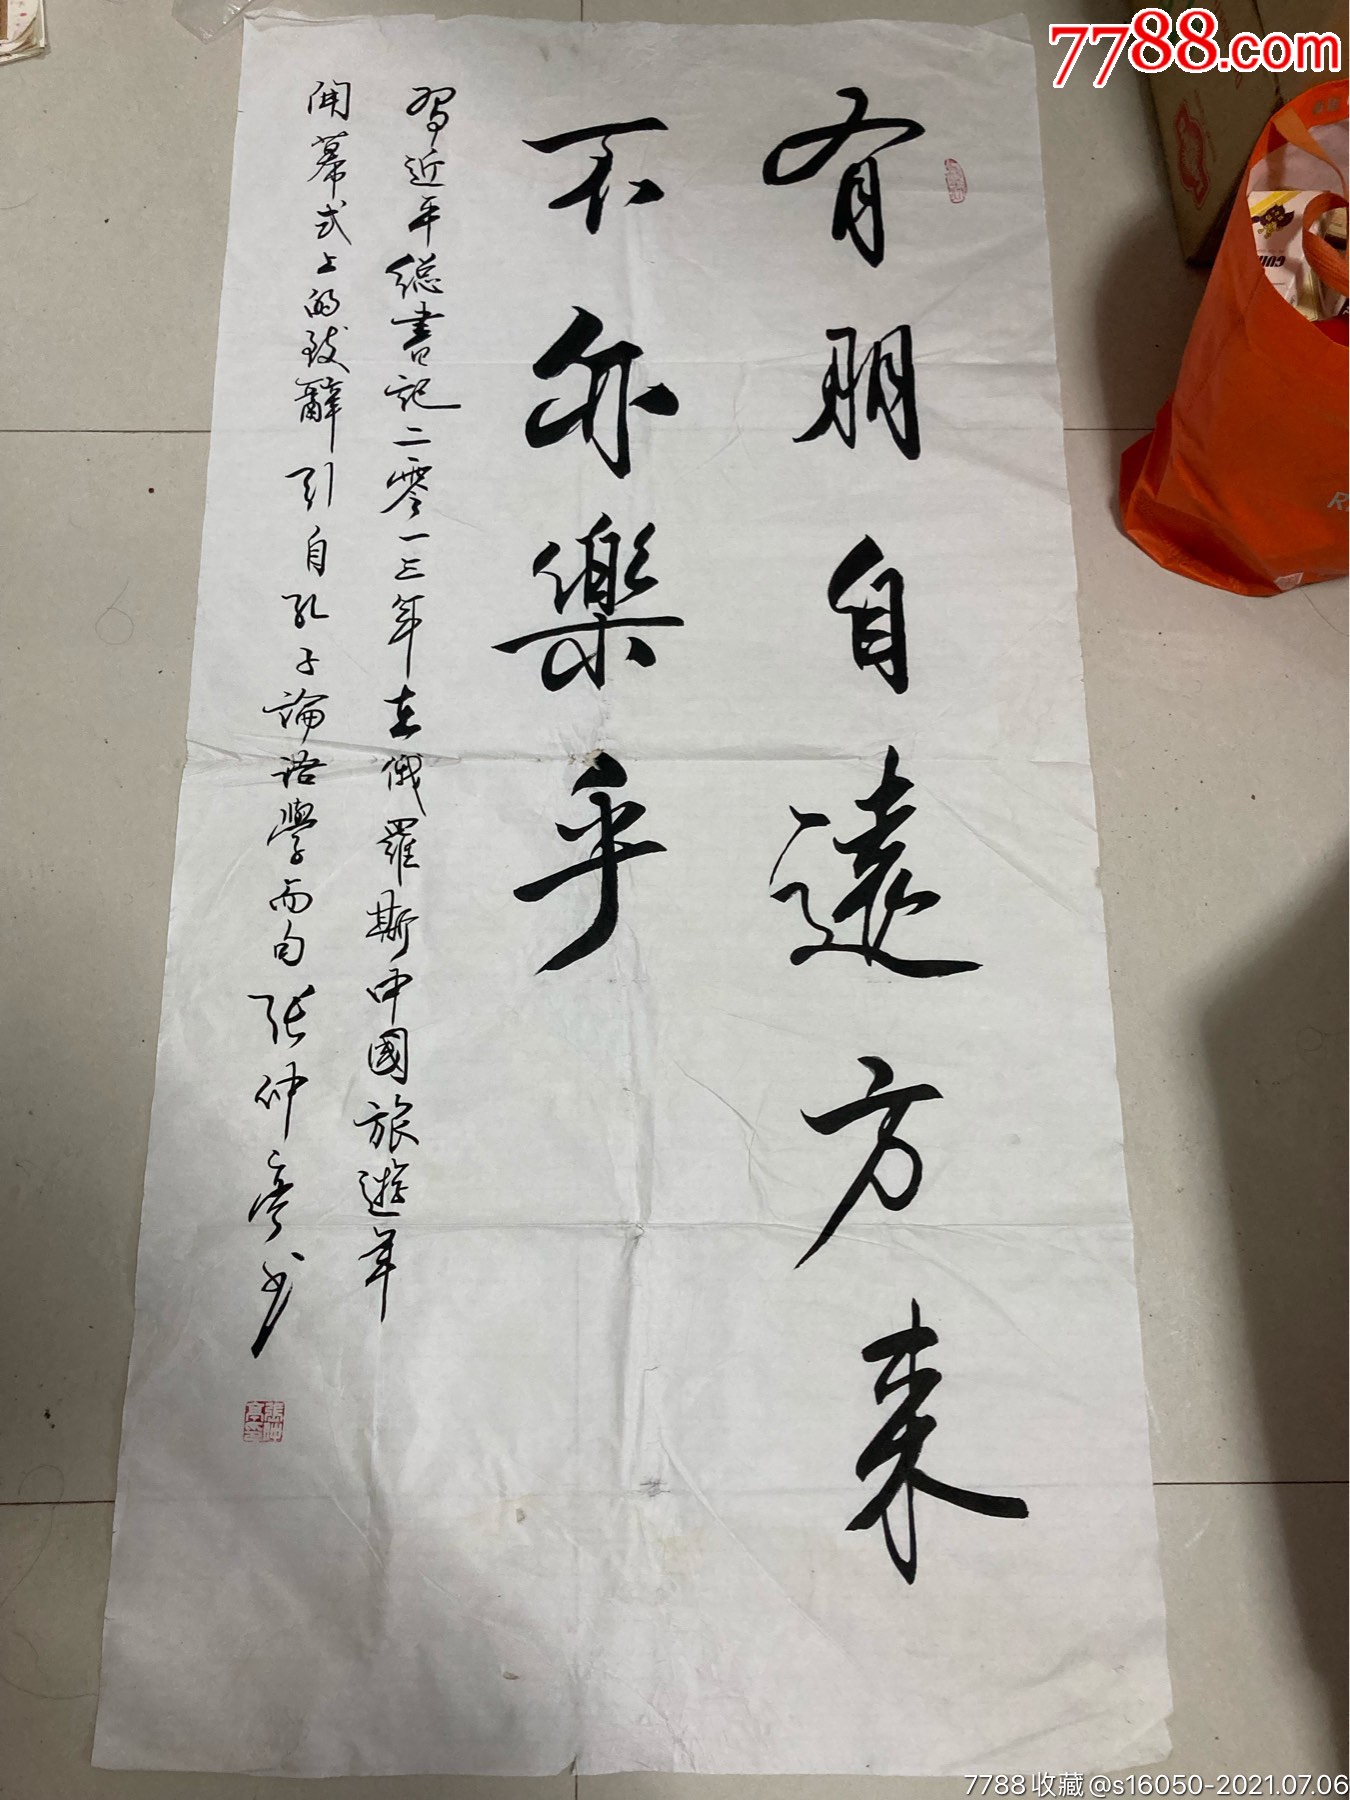 7788.com
有朋自遠方来
不亦樂乎
習近平総書记二零一三年在俄羅斯中國旅遊年
開幕式上的致辭引自孔子論语學而句张仲亭书
張仲
亭印
7788收藏@s16050-2021.07.06